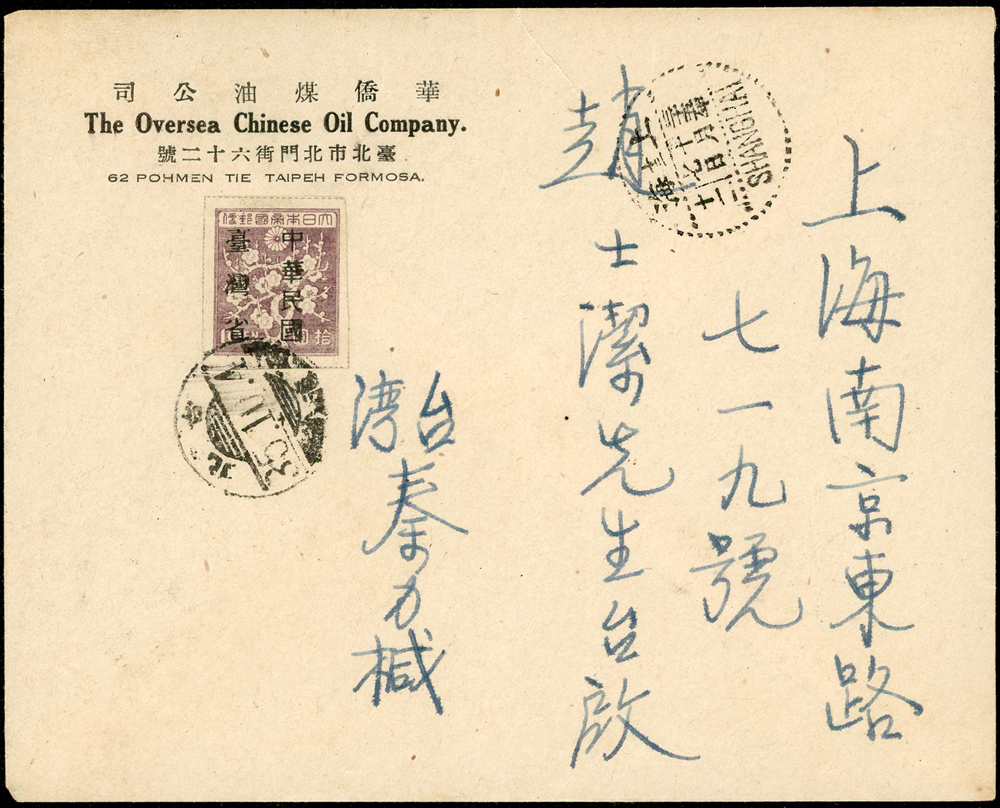 司公油煤僑華
The Oversea Chinese Oil Company.
號二十六街門北市北臺
62 POHMEN TIE TAIPEH FORMOSA.
大日本帝國郵便
中華民國
臺灣省
拾
台北
35.11.10
上海
SHANGHAI
上海南京東路
七一九號
趙士潔先生台啟
台灣
秦
緘